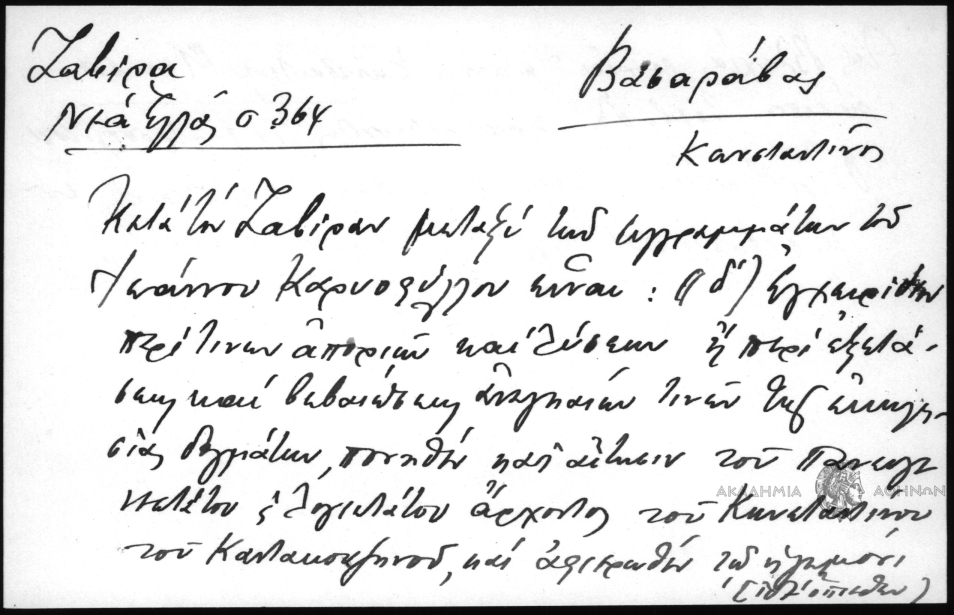 Ζαβίρα
Νέα Ἑλλάς σ 364
Βασαράβας
Κωνσταντῖνος
Κατὰ τὸν Ζαβίραν μεταξὺ τῶν συγγραμμάτων τοῦ
Ἰωάννου Καρυοφύλλου εἶναι : (δ΄) Ἐγχειρίδιον
περί τινων ἀποριῶν καὶ λύσεων ἢ περὶ ἐξετά-
σεως καὶ βεβαιώσεως ἀναγκαίων τινῶν τῆς ἐκκλη-
σίας δογμάτων, πονηθὲν κατ' αἴτησιν τοῦ Πανευγε
νεστάτου & λογιωτάτου ἄρχοντος τοῦ Κωνσταντίνου
τοῦ Καντακουζηνοῦ, καὶ ἀφιερωθὲν τῷ ἡγεμόνι
ΑΚΑΔΗΜΙΑ ΑΘΗΝΩΝ